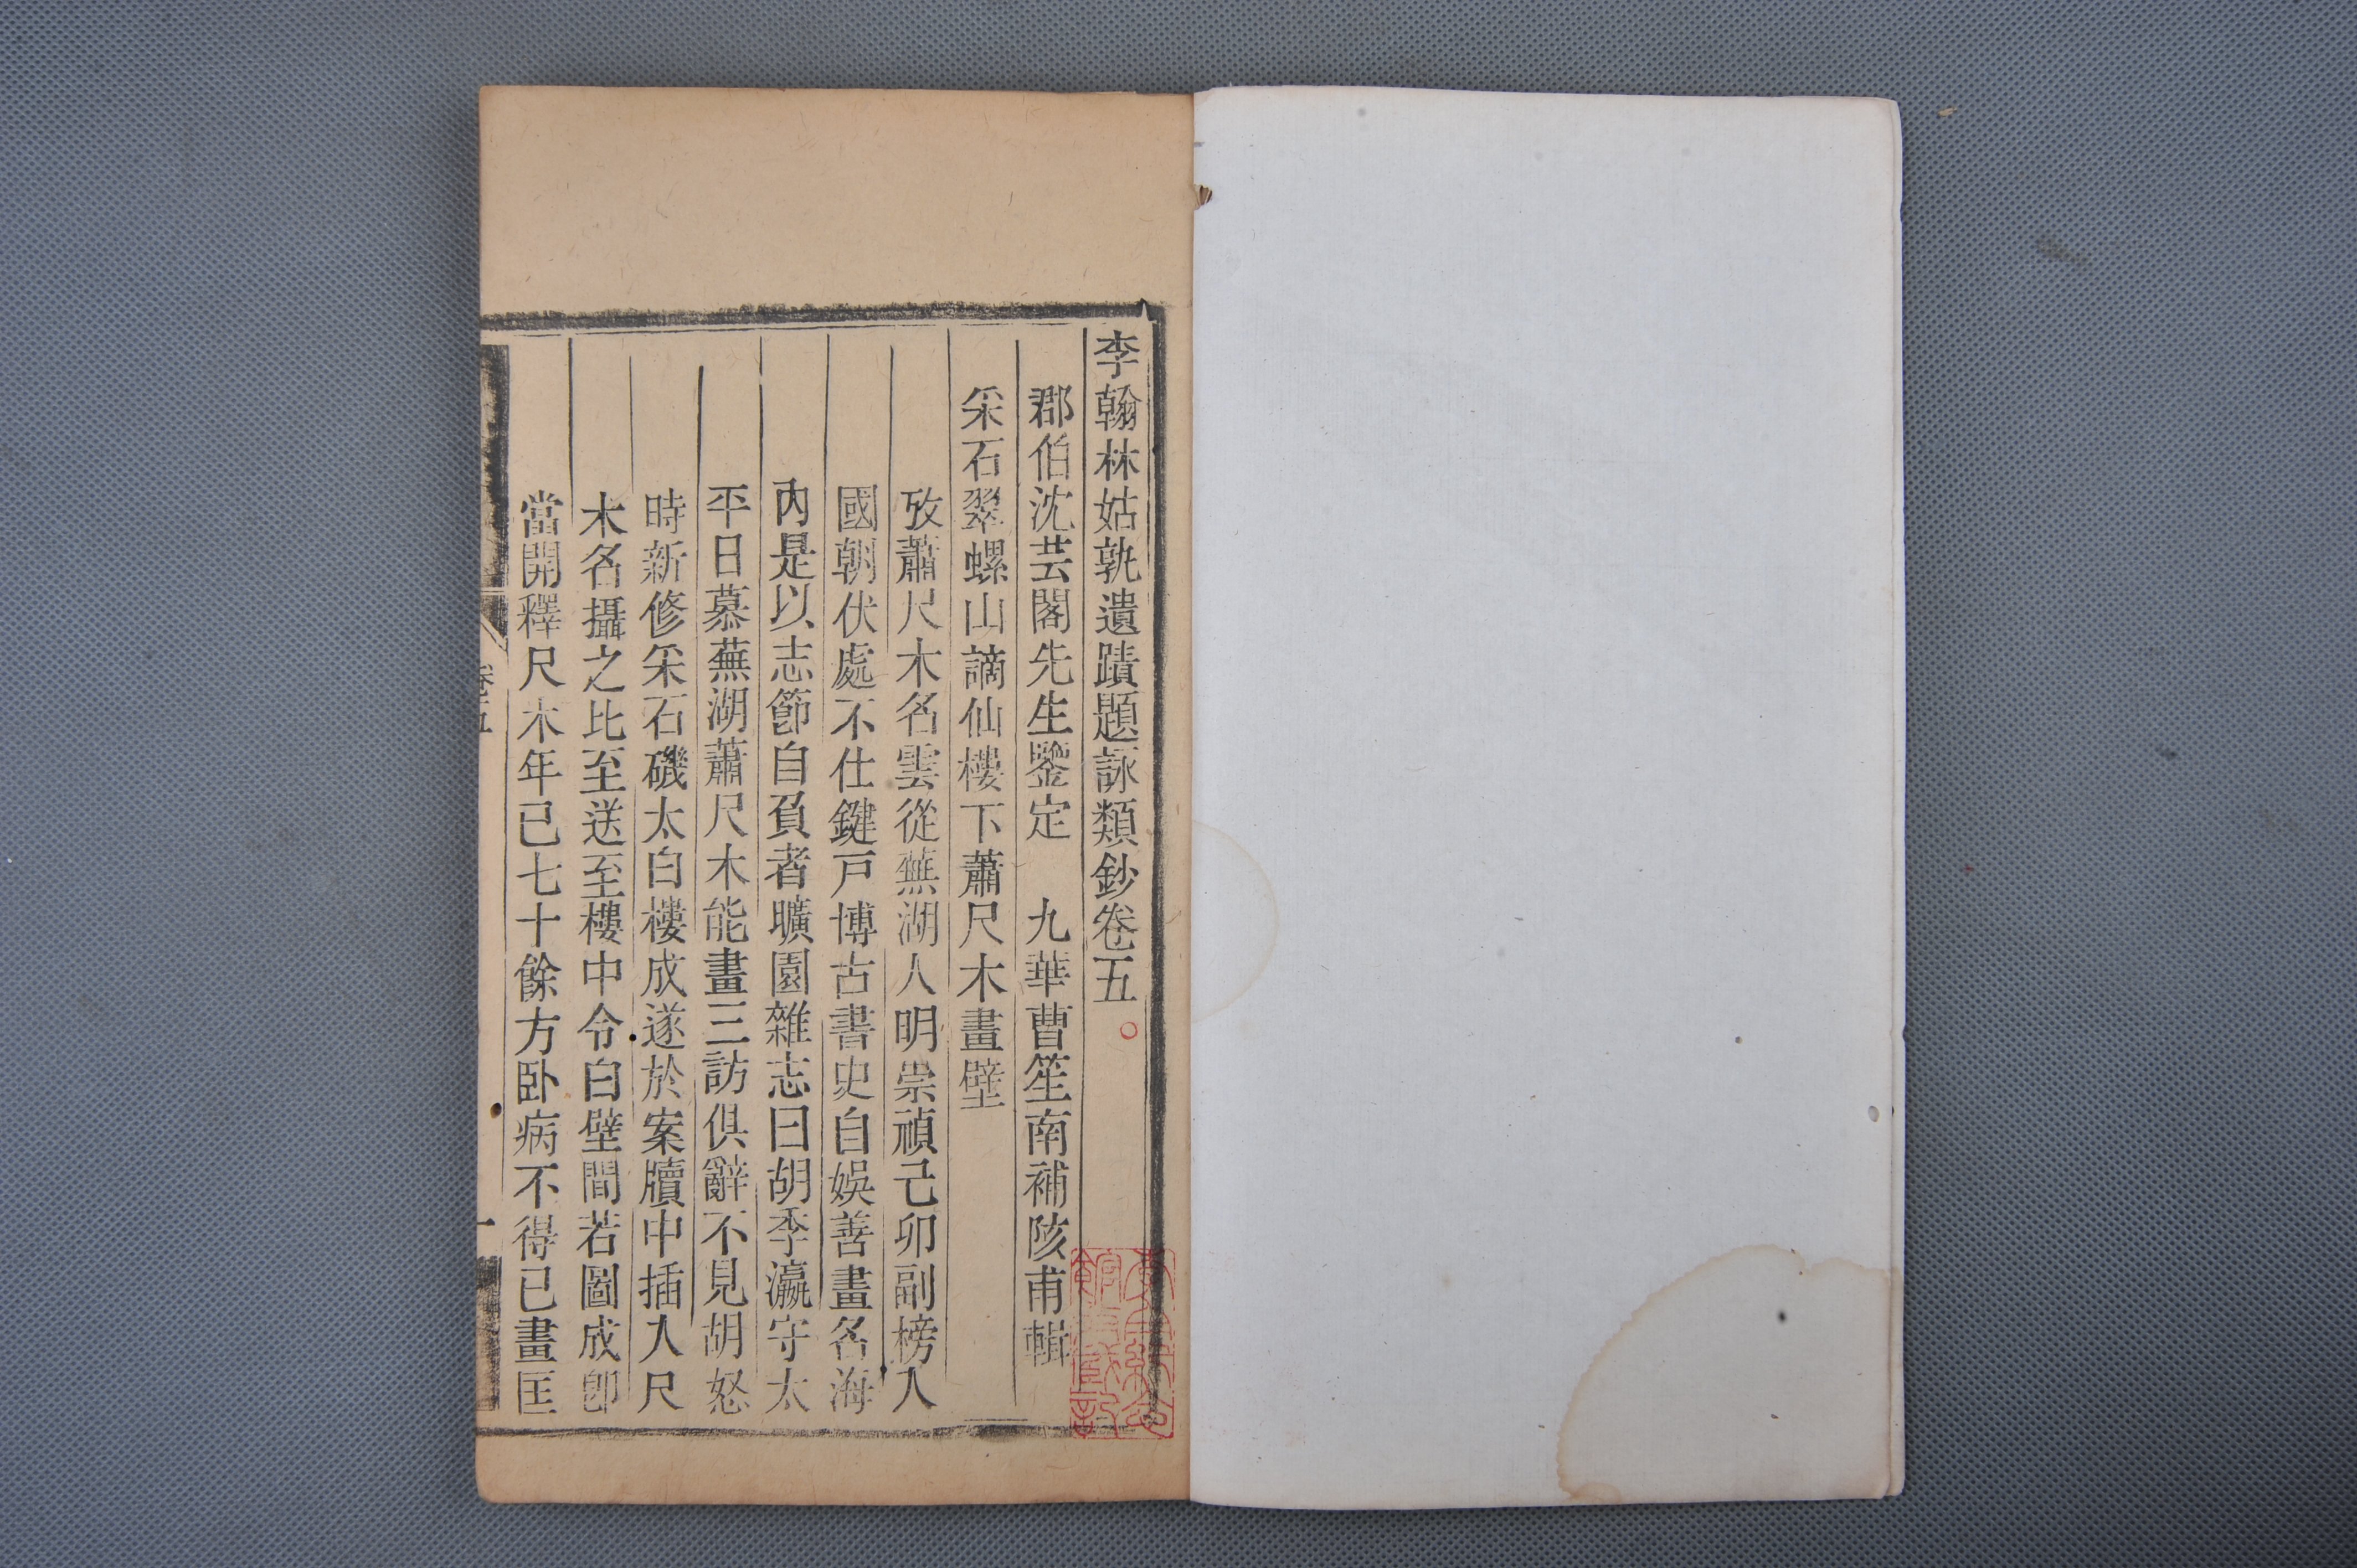 李翰林姑孰遺蹟題詠類鈔卷五
郡伯沈芸閣先生鑒定　九華曹笙南補陔甫輯
采石翠螺山謫仙樓下蕭尺木畫壁
攷蕭尺木名雲從蕪湖人明崇禎己卯副榜入
國朝伏處不仕鍵戸博古書史自娛善畫名海
內是以志節自負者曠園雜志曰胡季瀛守太
平日慕蕪湖蕭尺木能畫三訪俱辭不見胡怒
時新修采石磯太白樓成遂於案牘中插入尺
木名攝之比至送至樓中令白壁間若圖成卽
當開釋尺木年已七十餘方卧病不得已畫匡
卷五
一